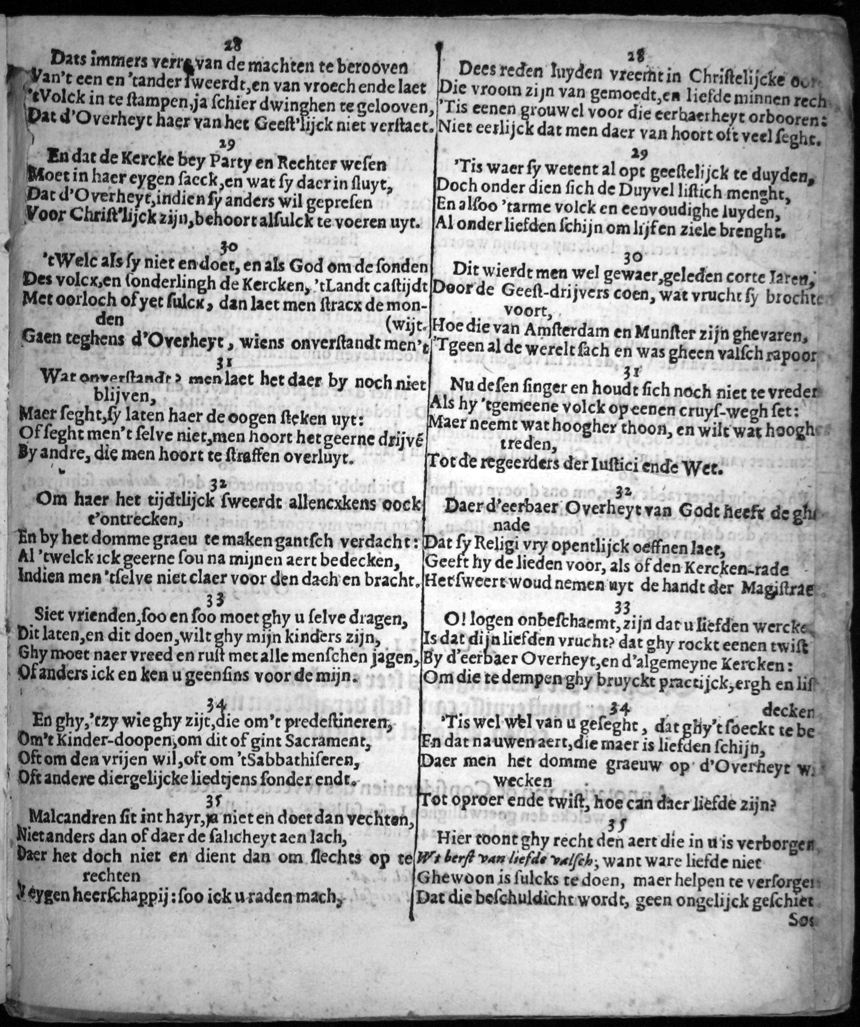 28
Dats immers verre van de machten te berooven
Van't een en 'tander sweerdt, en van vroech ende laet
'tVolck in te stampen, ja schier dwinghen te gelooven,
Dat d'Overheyt haer van het Geest'lijck niet verstaet.
29
En dat de Kercke bey Party en Rechter wesen
Moet in haer eygen saeck, en wat sy daer in sluyt,
Dat d'Overheyt, indien sy anders wil gepresen
Voor Christ'lijck zijn, behoort alsulck te voeren uyt.
30
'tWelc als sy niet en doet, en als God om de sonden
Des volcx, en sonderlingh de Kercken, 'tLandt castijdt
Met oorloch of yet sulcx, dan laet men stracx de mon-
den (wijt.
Gaen teghens d'Overheyt, wiens onverstandt men't
31
Wat onverstandt? men laet het daer by noch niet
blijven,
Maer seght, sy laten haer de oogen steken uyt:
Of seght men't selve niet, men hoort het geerne drijvē
By andre, die men hoort te straffen overluyt.
32
Om haer het tijdtlijck sweerdt allencxkens oock
t'ontrecken,
En by het domme graeu te maken gantsch verdacht:
Al 'twelck ick geerne sou na mijnen aert bedecken,
Indien men 'tselve niet claer voor den dach en bracht.
33
Siet vrienden, soo en soo moet ghy u selve dragen,
Dit laten, en dit doen, wilt ghy mijn kinders zijn,
Ghy moet naer vreed en rust met alle menschen jagen,
Of anders ick en ken u geensins voor de mijn.
34
En ghy, 'tzy wie ghy zijt, die om't predestineren,
Om't Kinder-doopen, om dit of gint Sacrament,
Oft om den vrijen wil, oft om 'tSabbathiseren,
Oft andere diergelijcke liedtjens sonder endt.
35
Malcandren sit int hayr, ja niet en doet dan vechten,
Niet anders dan of daer de salicheyt aen lach,
Daer het doch niet en dient dan om slechts op te
rechten
eygen heerschappij: soo ick u raden mach,
28
Dees reden luyden vreemt in Christelijcke
Die vroom zijn van gemoedt, en liefde minnen rech
'Tis eenen grouwel voor die eerbaerheyt orbooren:
Niet eerlijck dat men daer van hoort oft veel seght.
29
'Tis waer sy wetent al opt geestelijck te duyden,
Doch onder dien sich de Duyvel listich menght,
En alsoo 'tarme volck en eenvoudighe luyden,
Al onder liefden schijn om lijf en ziele brenght.
30
Dit wierdt men wel gewaer, geleden corte Iaren,
Door de Geest-drijvers coen, wat vrucht sy brochte
voort,
Hoe die van Amsterdam en Munster zijn ghevaren,
'Tgeen al de werelt sach en was gheen valsch rapoor
31
Nu desen singer en houdt sich noch niet te vreder
Als hy 'tgemeene volck op eenen cruys-wegh set:
Maer neemt wat hoogher thoon, en wilt wat hoogh
treden,
Tot de regeerders der Iustici ende Wet.
32
Daer d'eerbaer Overheyt van Godt heeft de ghe
nade
Dat sy Religi vry opentlijck oeffnen laet,
Geeft hy de lieden voor, als of den Kercken-rade
Het sweert woud nemen uyt de handt der Magistrae
33
O! logen onbeschaemt, zijn dat u liefden wercke
Is dat dijn liefden vrucht? dat ghy rockt eenen twist
By d'eerbaer Overheyt, en d'algemeyne Kercken:
Om die te dempen ghy bruyckt practijck, ergh en lis
34 decken
'Tis wel wel van u geseght, dat ghy't soeckt te be
En dat na uwen aert, die maer is liefden schijn,
Daer men het domme graeuw op d'Overheyt w
wecken
Tot oproer ende twist, hoe can daer liefde zijn?
35
Hier toont ghy recht den aert die in u is verborgen
Wt berst van liefde valsch; want ware liefde niet
Ghewoon is sulcks te doen, maer helpen te versorgen
Dat die beschuldicht wordt, geen ongelijck geschiet
Soo